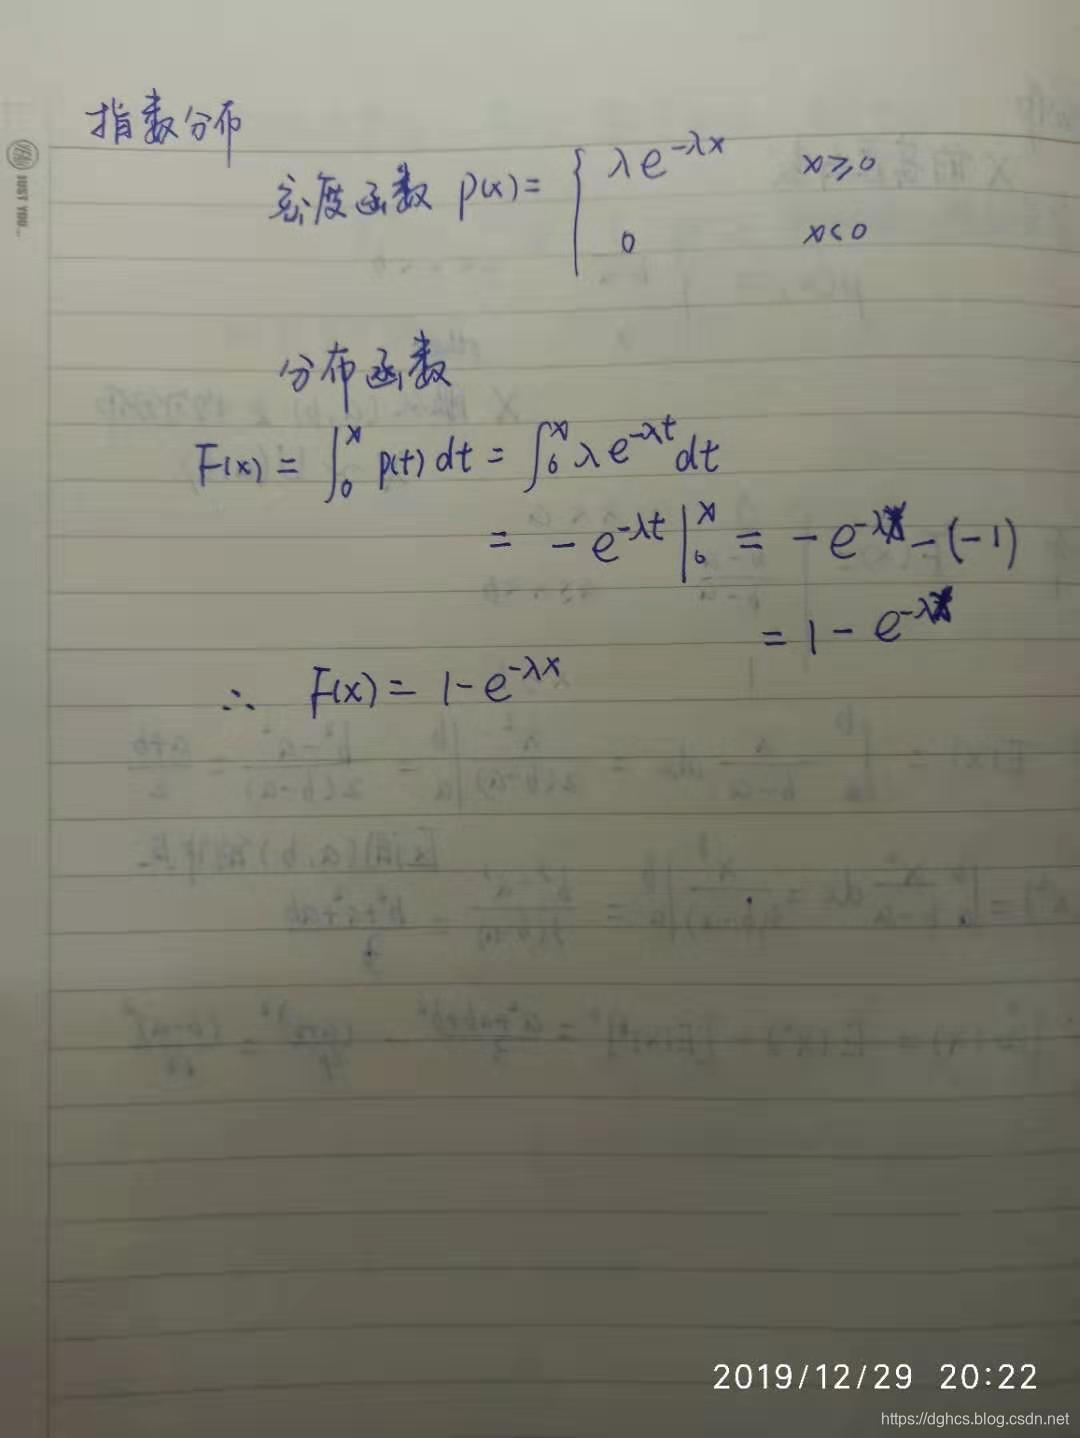 指数分布
密度函数 p(x) = { λe^{-λx} x≥0
0 x<0
分布函数
F(x) = ∫_0^x p(t) dt = ∫_0^x λe^{-λt} dt
= -e^{-λt} |_0^x = -e^{-λx} - (-1)
= 1 - e^{-λx}
∴ F(x) = 1 - e^{-λx}
JUST YOU...
2019/12/29 20:22
https://dghcs.blog.csdn.net